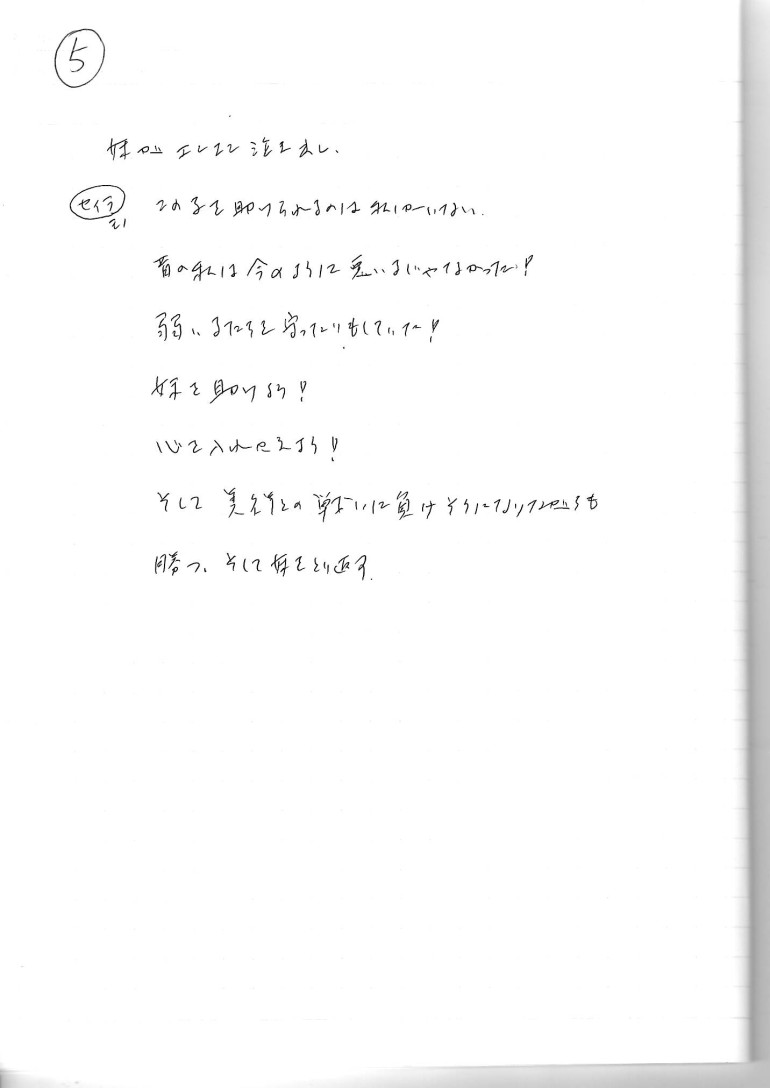 ⑤
妹が エレエレ 泣き出し、
セイラ この子を助けられるのは私しかいない。
昔の私は今のように悪い子じゃなかった!
弱い子たちを守ったりもしていた!
妹を助けよう!
心を入れかえよう!
そして との戦いに負けそうになりながらも
勝つ、そして妹をとり返す。